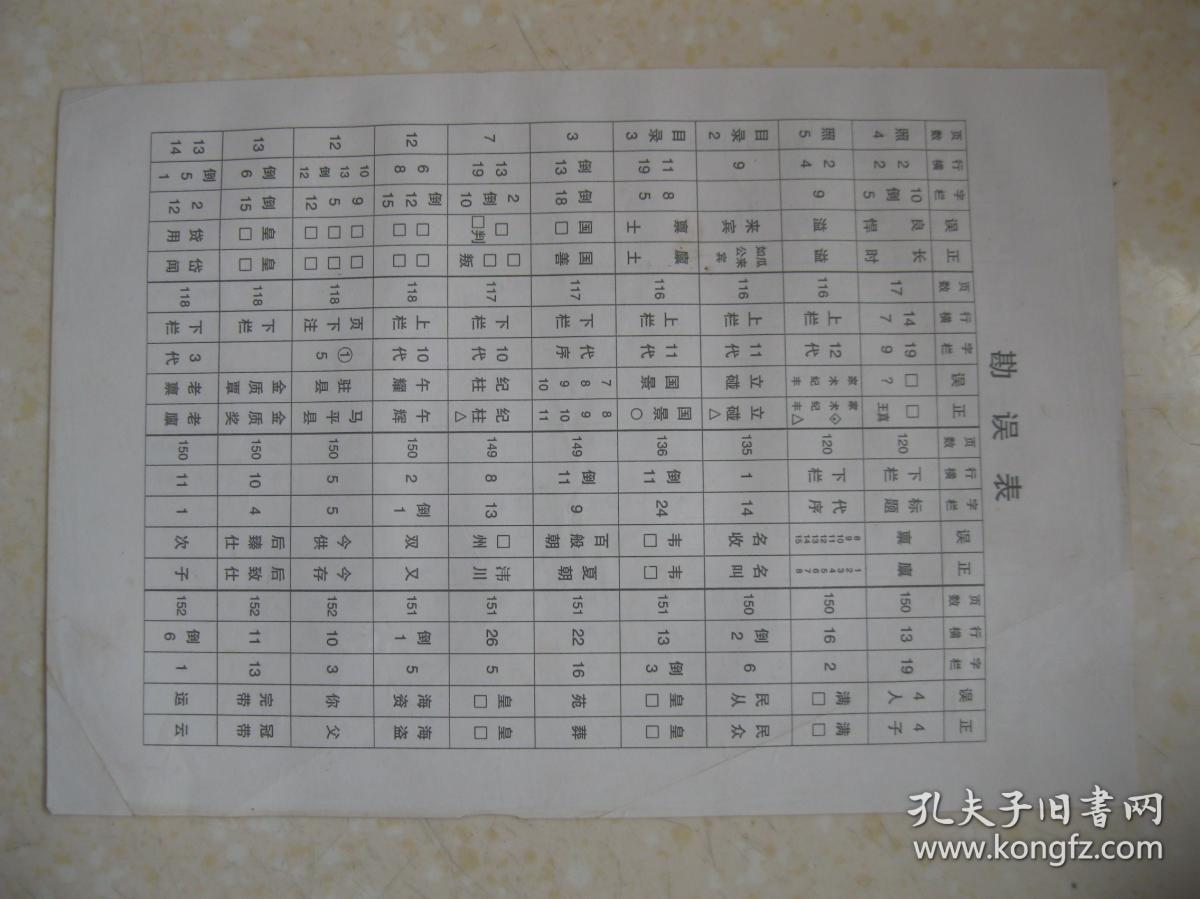 勘误表
页数 行横 字栏 误 正 页数 行横 字栏 误 正 页数 行横 字栏 误 正 页数 行横 字栏 误 正
照4 2 2 10 倒5 良 悍 长 时 17 14 7 19 9 □ ? □ 王真 120 下栏 标题 禀 廪 150 13 19 4人 4子
照5 2 4 9 溢 谥 116 上栏 12代 家术纪丰 家术◇纪丰△ 120 下栏 代序 8 9 10 11 12 13 14 15 1 2 3 4 5 6 7 8 150 16 2 满□ 满□
目录2 9 来宾 如瓜公来宾 116 上栏 11代 立碰 立碰△ 135 1 14 名收 名叫 150 倒2 6 民从 民众
目录3 11 19 8 5 禀 土 廪 土 116 上栏 11代 国景 国景○ 136 倒11 24 韦□ 韦□ 151 13 倒3 皇□ 皇□
3 倒13 倒18 国□ 国善 117 下栏 代序 7 8 9 10 8 9 10 11 149 倒11 9 百般朝 夏朝 151 22 16 苑 葬
7 13 19 2 倒10 □ □判 □ □叛 117 下栏 10代 纪柱 纪柱△ 149 8 13 □州 沣川 151 26 5 皇□ 皇□
12 6 8 倒12 15 □ □ □ □ 118 上栏 10代 午耀 午辉 150 2 倒1 双 又 151 倒1 5 海资 海盗
12 10 13 倒12 9 5 12 □ □ □ □ □ □ 118 页下注 ①5 驻县 马平县 150 5 5 今供 今存 152 10 3 你 父
13 倒6 倒15 皇□ 皇□ 118 下栏 金质覃 金质奖 150 10 4 后臻仕 后致仕 152 11 13 完带 冠带
13 14 倒5 1 2 12 贷 用 岱 闻 118 下栏 3代 老禀 老廪 150 11 1 次 子 152 倒6 1 运 云
孔夫子旧书网
www.kongfz.com